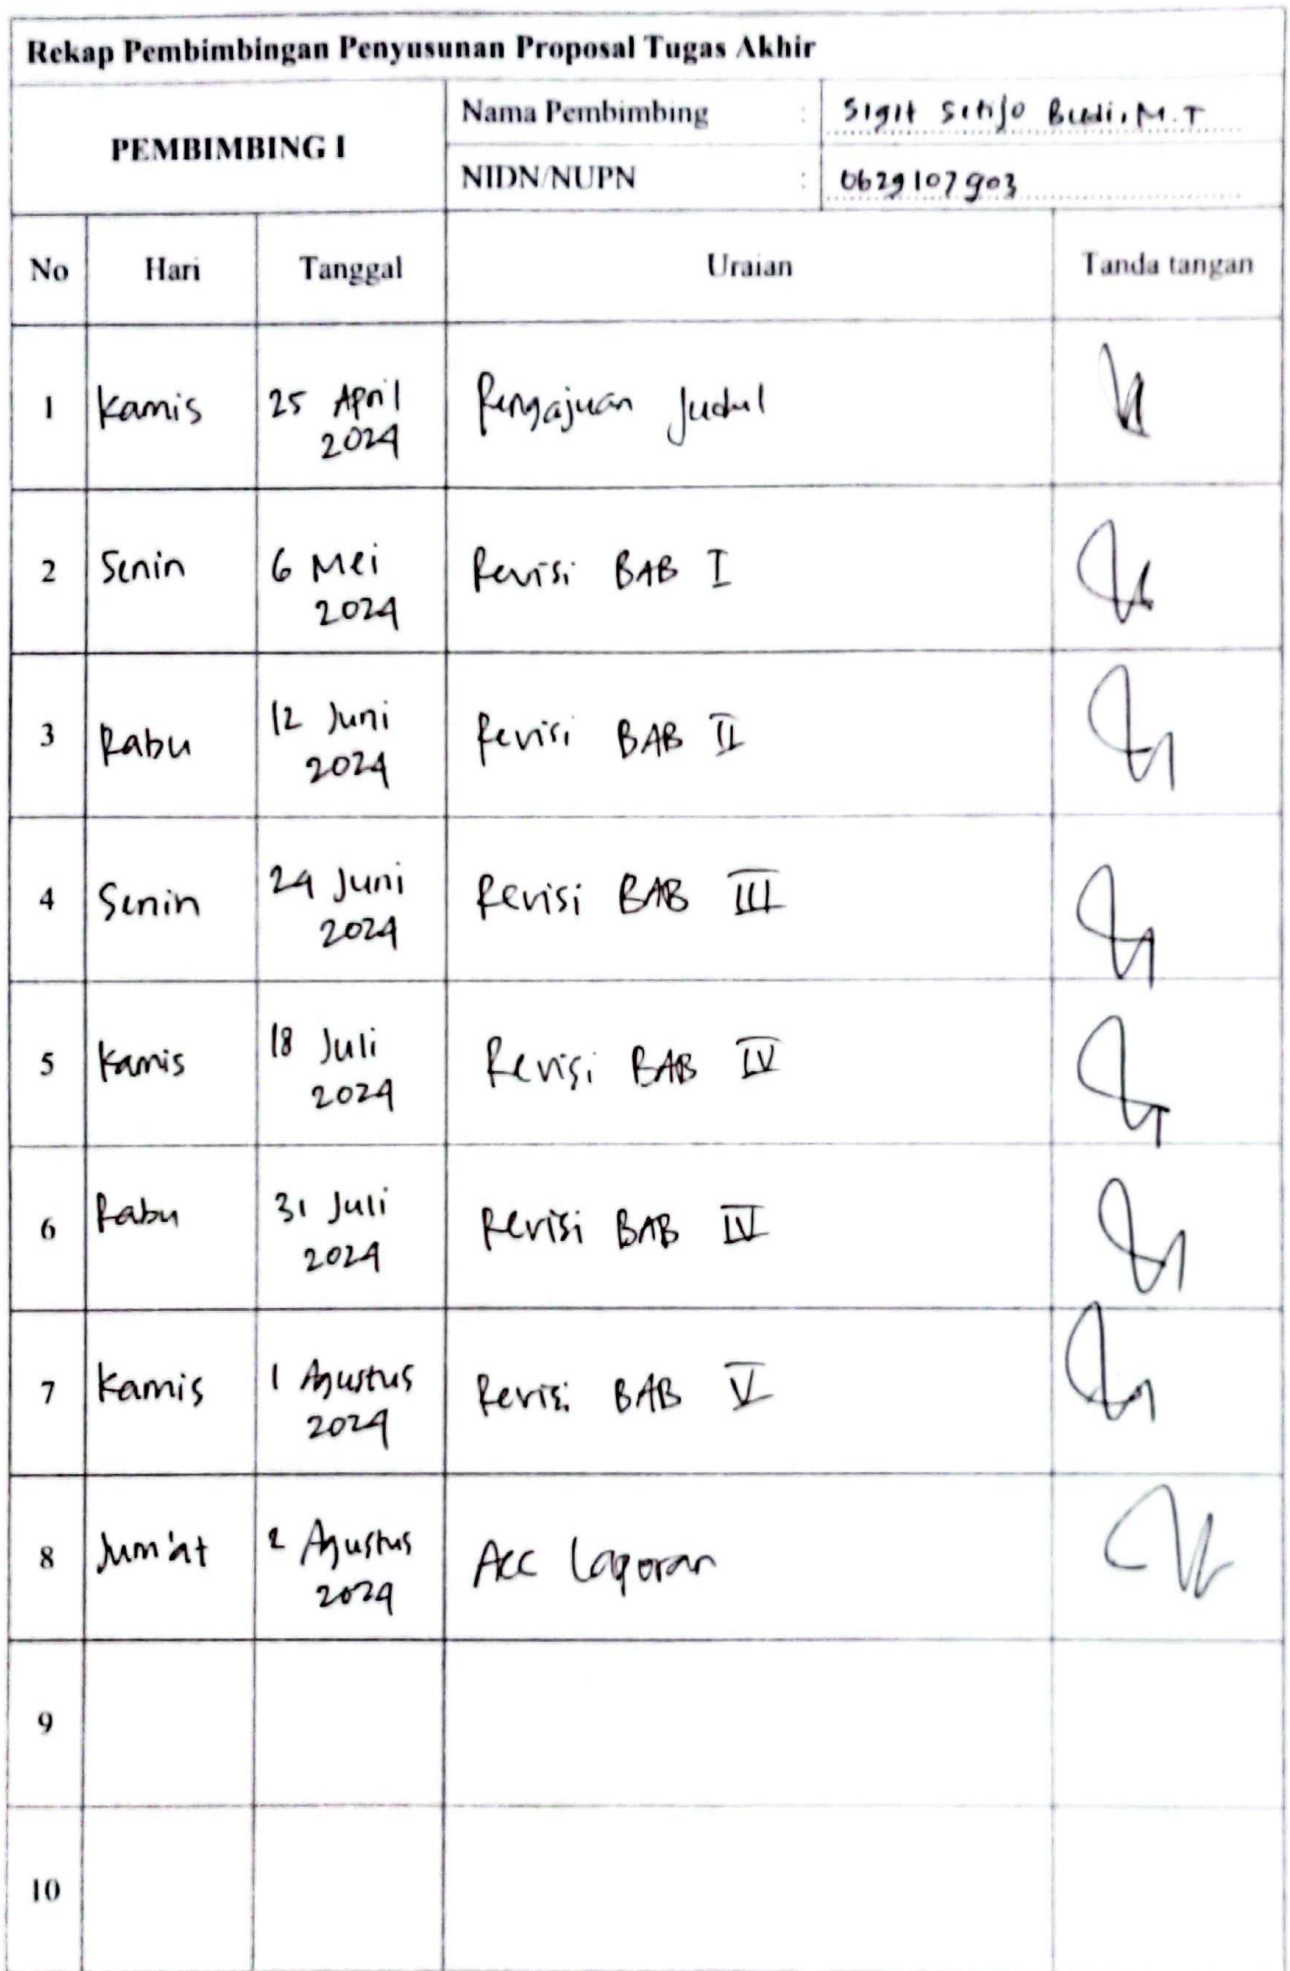 Rekap Pembimbingan Penyusunan Proposal Tugas Akhir
PEMBIMBING I
Nama Pembimbing : Sigit Setijo Budi, M.T
NIDN/NUPN : 0629107903
No Hari Tanggal Uraian Tanda tangan
1 Kamis 25 April Pengajuan Judul
2024
2 Senin 6 Mei Revisi BAB I
2024
3 Rabu 12 Juni Revisi BAB II
2024
4 Senin 24 Juni Revisi BAB III
2024
5 Kamis 18 Juli Revisi BAB IV
2024
6 Rabu 31 Juli Revisi BAB IV
2024
7 Kamis 1 Agustus Revisi BAB V
2024
8 Jum'at 2 Agustus Acc Laporan
2024
9
10